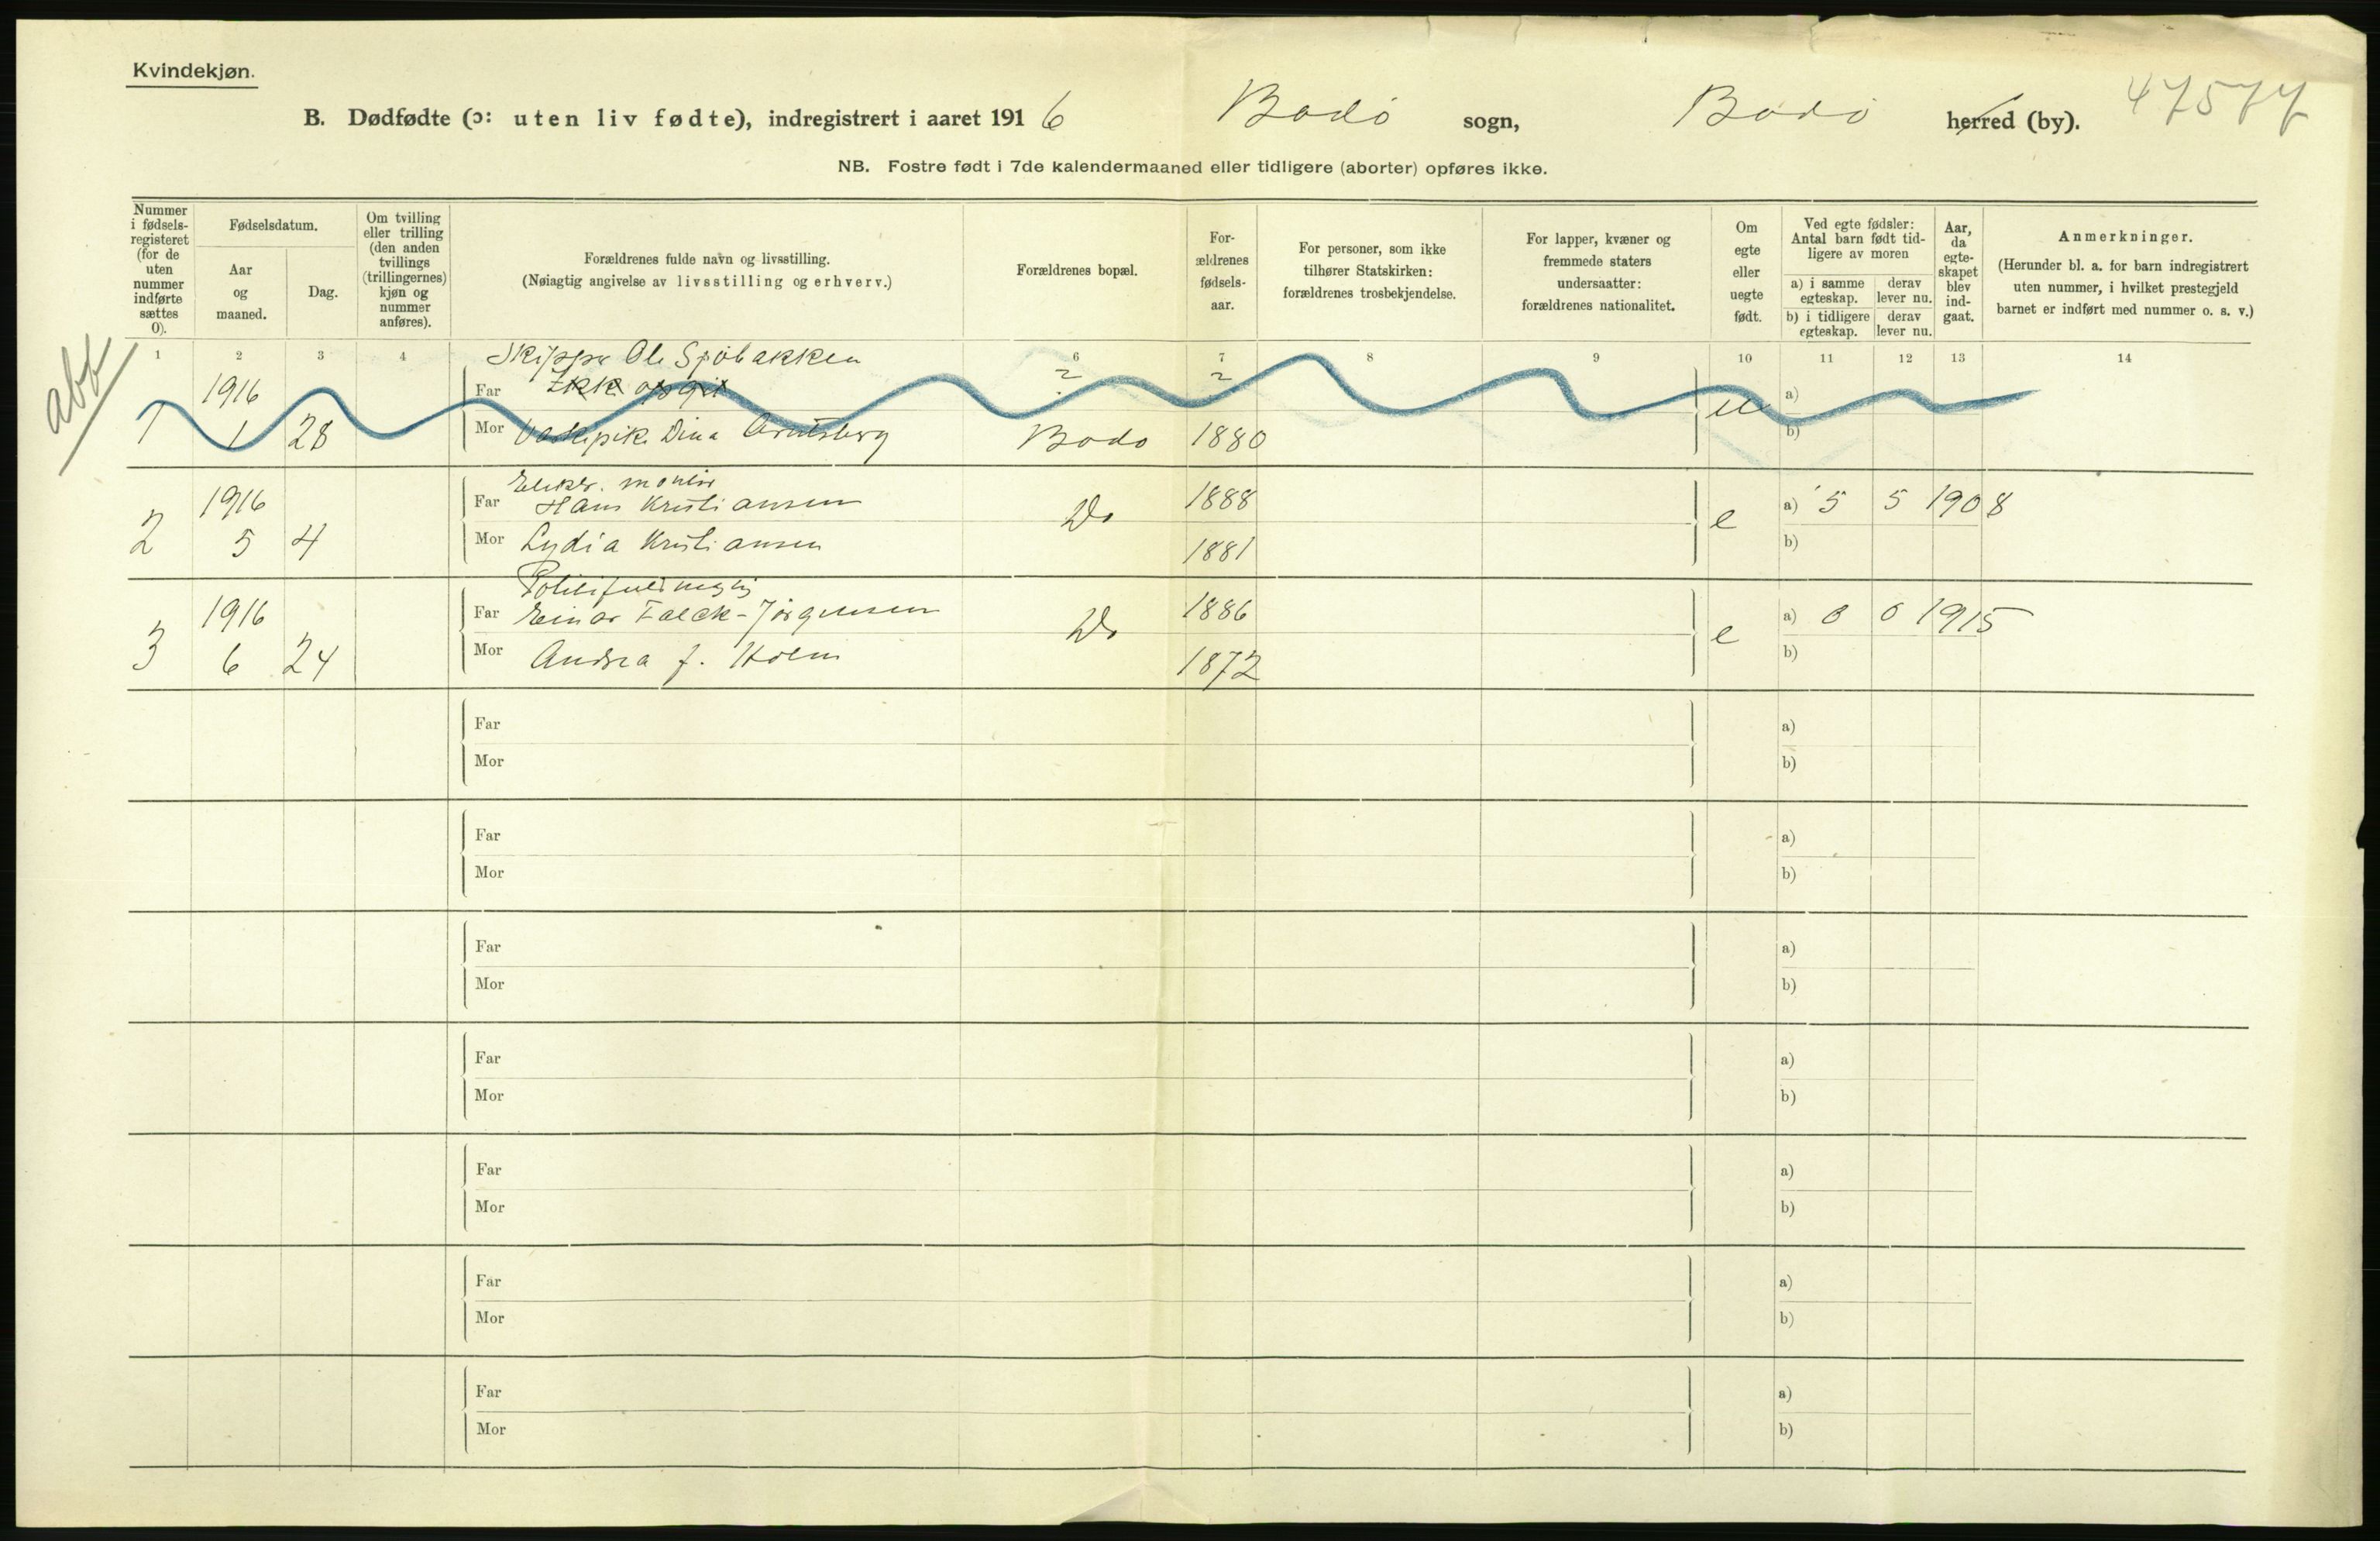 Kvindekjøn.
B. Dødfødte (ɔ: uten liv fødte), indregistrert i aaret 1916 Bodø sogn, Bodø herred (by). 47577
NB. Fostre født i 7de kalendermaaned eller tidligere (aborter) opføres ikke.
Nummer i fødsels-registeret (for de uten nummer indførte sættes 0).
Fødselsdatum.
Aar og maaned.
Dag.
Om tvilling eller trilling (den anden tvillings (trillingernes) kjøn og nummer anføres).
Forældrenes fulde navn og livsstilling.
(Nøiagtig angivelse av livsstilling og erhverv.)
Forældrenes bopæl.
For-ældrenes fødsels-aar.
For personer, som ikke tilhører Statskirken: forældrenes trosbekjendelse.
For lapper, kvæner og fremmede staters undersaatter: forældrenes nationalitet.
Om egte eller uegte født.
Ved egte fødsler: Antal barn født tid-ligere av moren
a) i samme egteskap. derav lever nu.
b) i tidligere egteskap. derav lever nu.
Aar, da egte-skapet blev ind-gaat.
Anmerkninger.
(Herunder bl. a. for barn indregistrert uten nummer, i hvilket prestegjeld barnet er indført med nummer o. s. v.)
1 2 3 4 6 7 8 9 10 11 12 13 14
abf
Skipper Ole Sjøbakken
1916 Far Ikke opgit ? ? a)
1 1 28 Mor Dina Bodø 1880 u b)
Elektr. montør
1916 Far Hans Kristiansen Do 1888 a) 5 5 1908
2 5 4 Mor Lydia Kristiansen 1881 e b)
Politifuldmegtig
1916 Far Einar Falck-Jörgensen Do 1886 a) 0 0 1915
3 6 24 Mor Andrea f. Holm 1872 e b)
Far a)
Mor b)
Far a)
Mor b)
Far a)
Mor b)
Far a)
Mor b)
Far a)
Mor b)
Far a)
Mor b)
Far a)
Mor b)